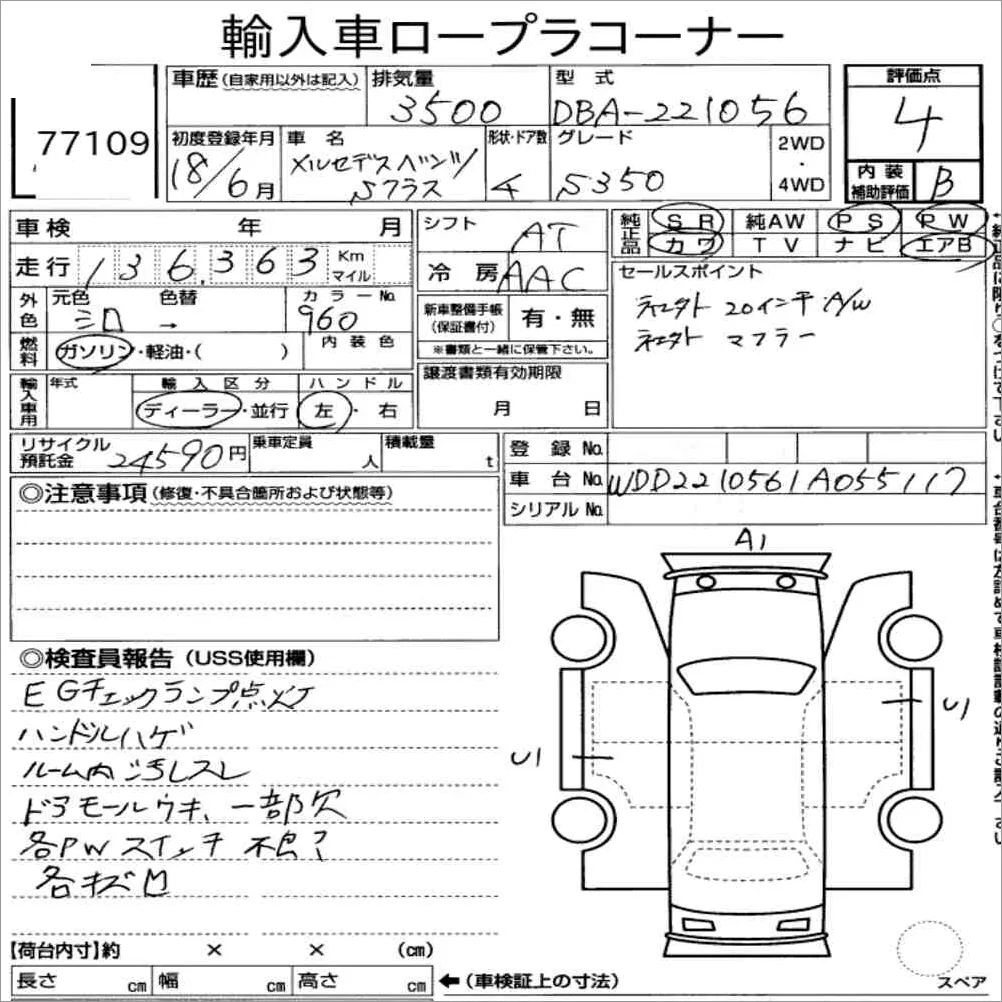 輸入車ロープラコーナー
77109
車歴(自家用以外は記入) 排気量 型式 評価点
3500 DBA-221056 4
初度登録年月 車名 形状・ドア数 グレード 2WD・4WD
18/6月 メルセデスベンツ
Sクラス 4 S350
内装補助評価 B
車検 年 月
シフト AT
純正品 SR 純AW PS PW
カワ TV ナビ エアB
走行 136,363 Km マイル
冷房 AAC
セールスポイント
社外 20インチ A/W
社外 マフラー
外色 元色 色替 カラーNo.
→ 960
新車整備手帳(保証書付) 有・無
※書類と一緒に保管下さい。
燃料 ガソリン・軽油・( ) 内装色
輸入車用 年式 輸入区分 ハンドル
ディーラー・並行 左・右
譲渡書類有効期限
月 日
リサイクル預託金 24590円 乗車定員 人 積載量 t
登録No.
車台No. WDD2210561A055117
シリアルNo.
◎注意事項(修復・不具合箇所および状態等)
A1
U1
U1
◎検査員報告(USS使用欄)
EGチェックランプ点灯
ハンドルハゲ
ルーム内 汚レスレ
ドアモールウキ、一部欠
各PWスイッチ 不良?
各キズ凹
【荷台内寸】約 × × (cm)
長さ cm 幅 cm 高さ cm ←(車検証上の寸法)
スペア